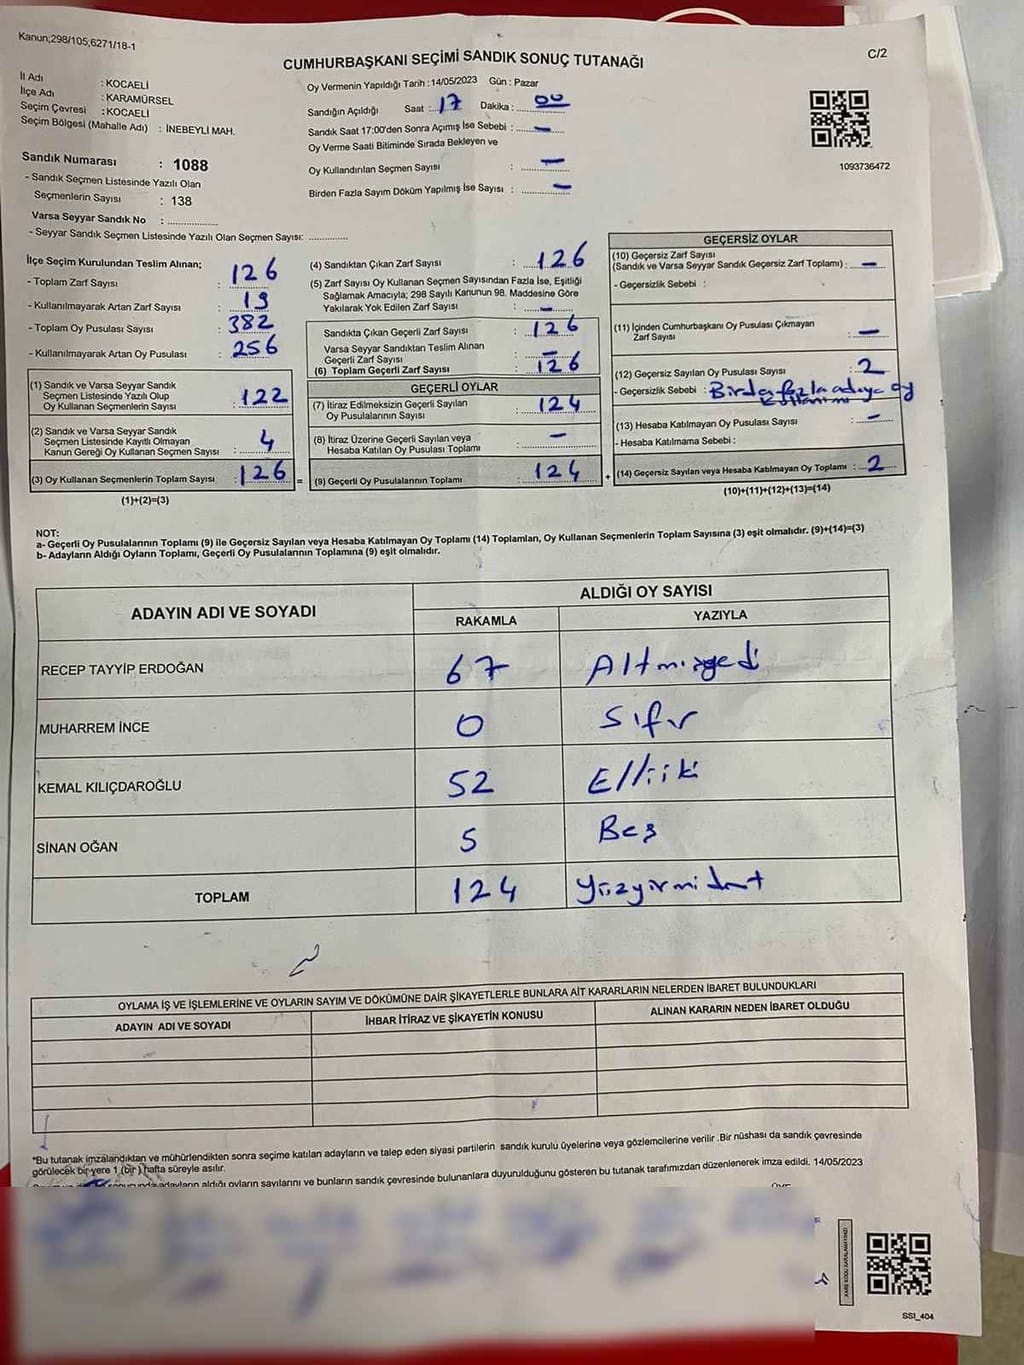 Kanun;298/105,6271/18-1
C/2
CUMHURBAŞKANI SEÇİMİ SANDIK SONUÇ TUTANAĞI
İl Adı : KOCAELİ
İlçe Adı : KARAMÜRSEL
Seçim Çevresi : KOCAELİ
Seçim Bölgesi (Mahalle Adı) : İNEBEYLİ MAH.
Sandık Numarası : 1088
- Sandık Seçmen Listesinde Yazılı Olan
Seçmenlerin Sayısı : 138
Varsa Seyyar Sandık No :
- Seyyar Sandık Seçmen Listesinde Yazılı Olan Seçmen Sayısı:
Oy Vermenin Yapıldığı Tarih : 14/05/2023 Gün : Pazar
Sandığın Açıldığı Saat : 17 Dakika : 00
Sandık Saat 17:00'den Sonra Açımış İse Sebebi : —
Oy Verme Saati Bitiminde Sırada Bekleyen ve
Oy Kullandırılan Seçmen Sayısı : —
Birden Fazla Sayım Döküm Yapılmış İse Sayısı : —
1093736472
İlçe Seçim Kurulundan Teslim Alınan;
- Toplam Zarf Sayısı : 126
- Kullanılmayarak Artan Zarf Sayısı : 19
- Toplam Oy Pusulası Sayısı : 382
- Kullanılmayarak Artan Oy Pusulası : 256
(1) Sandık ve Varsa Seyyar Sandık
Seçmen Listesinde Yazılı Olup
Oy Kullanan Seçmenlerin Sayısı : 122
(2) Sandık ve Varsa Seyyar Sandık
Seçmen Listesinde Kayıtlı Olmayan
Kanun Gereği Oy Kullanan Seçmen Sayısı : 4
(3) Oy Kullanan Seçmenlerin Toplam Sayısı : 126 =
(1)+(2)=(3)
(4) Sandıktan Çıkan Zarf Sayısı : 126
(5) Zarf Sayısı Oy Kullanan Seçmen Sayısından Fazla İse, Eşitliği
Sağlamak Amacıyla; 298 Sayılı Kanunun 98. Maddesine Göre
Yakılarak Yok Edilen Zarf Sayısı : —
Sandıkta Çıkan Geçerli Zarf Sayısı : 126
Varsa Seyyar Sandıktan Teslim Alınan
Geçerli Zarf Sayısı : —
(6) Toplam Geçerli Zarf Sayısı : 126
GEÇERLİ OYLAR
(7) İtiraz Edilmeksizin Geçerli Sayılan
Oy Pusulalarının Sayısı : 124
(8) İtiraz Üzerine Geçerli Sayılan veya
Hesaba Katılan Oy Pusulası Toplamı : —
(9) Geçerli Oy Pusulalarının Toplamı : 124 +
GEÇERSİZ OYLAR
(10) Geçersiz Zarf Sayısı
(Sandık ve Varsa Seyyar Sandık Geçersiz Zarf Toplamı) : —
- Geçersizlik Sebebi :
(11) İçinden Cumhurbaşkanı Oy Pusulası Çıkmayan
Zarf Sayısı : —
(12) Geçersiz Sayılan Oy Pusulası Sayısı : 2
- Geçersizlik Sebebi : Birden fazla adaya oy
kullanımı
(13) Hesaba Katılmayan Oy Pusulası Sayısı : —
- Hesaba Katılmama Sebebi :
(14) Geçersiz Sayılan veya Hesaba Katılmayan Oy Toplamı : 2
(10)+(11)+(12)+(13)=(14)
NOT:
a- Geçerli Oy Pusulalarının Toplamı (9) ile Geçersiz Sayılan veya Hesaba Katılmayan Oy Toplamı (14) Toplamları, Oy Kullanan Seçmenlerin Toplam Sayısına (3) eşit olmalıdır. (9)+(14)=(3)
b- Adayların Aldığı Oyların Toplamı, Geçerli Oy Pusulalarının Toplamına (9) eşit olmalıdır.
ADAYIN ADI VE SOYADI
ALDIĞI OY SAYISI
RAKAMLA YAZIYLA
RECEP TAYYİP ERDOĞAN 67 Altmışyedi
MUHARREM İNCE 0 Sıfır
KEMAL KILIÇDAROĞLU 52 Elliiki
SİNAN OĞAN 5 Beş
TOPLAM 124 Yüzyirmidört
OYLAMA İŞ VE İŞLEMLERİNE VE OYLARIN SAYIM VE DÖKÜMÜNE DAİR ŞİKAYETLERLE BUNLARA AİT KARARLARIN NELERDEN İBARET BULUNDUKLARI
ADAYIN ADI VE SOYADI İHBAR İTİRAZ VE ŞİKAYETİN KONUSU ALINAN KARARIN NEDEN İBARET OLDUĞU
*Bu tutanak imzalandıktan ve mühürlendikten sonra seçime katılan adayların ve talep eden siyasi partilerin sandık kurulu üyelerine veya gözlemcilerine verilir .Bir nüshası da sandık çevresinde
görülecek bir yere 1 (bir ) hafta süreyle asılır.
sonucunda adayların aldığı oyların sayılarını ve bunların sandık çevresinde bulunanlara duyurulduğunu gösteren bu tutanak tarafımızdan düzenlenerek imza edildi. 14/05/2023
ÜYE
KARE KODU KARALAMAYINIZ!
SSI_404